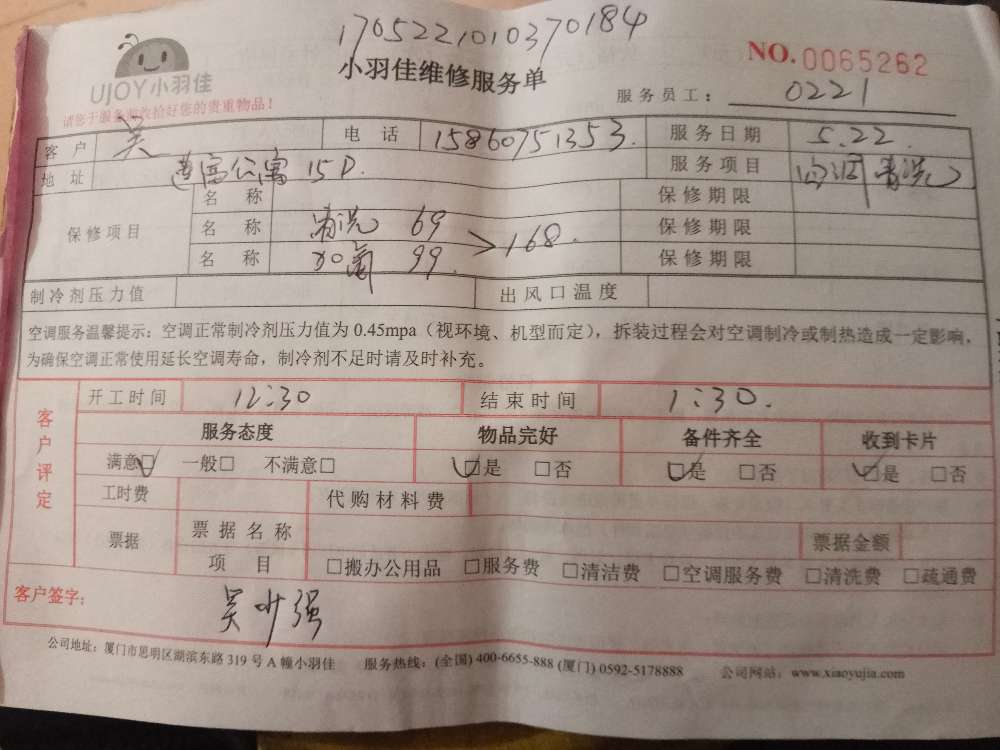 1705221010370184
UJOY小羽佳
小羽佳维修服务单
NO.0065262
请您于服务前收拾好您的贵重物品!
服务员工: 0221
客户 吴 电话 15860751353. 服务日期 5.22.
地址 莲富公寓 15D. 服务项目 空调清洗
保修项目 名称 保修期限
名称 清洗 69 保修期限
名称 加氟 99. >168. 保修期限
制冷剂压力值 出风口温度
空调服务温馨提示: 空调正常制冷剂压力值为 0.45mpa (视环境、机型而定), 拆装过程会对空调制冷或制热造成一定影响,
为确保空调正常使用延长空调寿命, 制冷剂不足时请及时补充。
客户评定
开工时间 12:30 结束时间 1:30.
服务态度 物品完好 备件齐全 收到卡片
满意☑ 一般□ 不满意□ ☑是 □否 ☑是 □否 ☑是 □否
工时费 代购材料费
票据 票据名称 票据金额
项目 □搬办公用品 □服务费 □清洁费 □空调服务费 □清洗费 □疏通费
客户签字: 吴叶强
公司地址: 厦门市思明区湖滨东路 319 号 A 幢小羽佳 服务热线: (全国) 400-6655-888 (厦门) 0592-5178888 公司网站: www.xiaoyujia.com